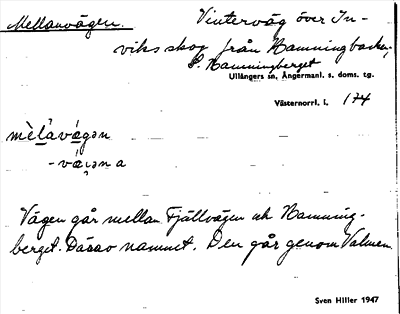 Mellanvägen. Vinterväg över In-
viks skog från Namningbacken,
S. Namningberget
Ullångers sn, Ångermanl. s. doms. tg.
Västernorrl. l. 174
mèlàvágən
-váɡəna
Vägen går mellan Fjällvägen och Namning-
berget. Därav namnet. Den går genom Valmen
Sven Hiller 1947